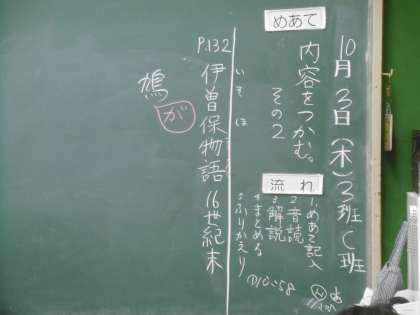 10月3日(木)3班C班
めあて
内容をつかむ。
その2
流れ
1.めあて記入
2音読
3解説
4まとめる
5ふりかえり
①10:58
いそほ
P.132
伊曽保物語 16世紀末
鳩
が